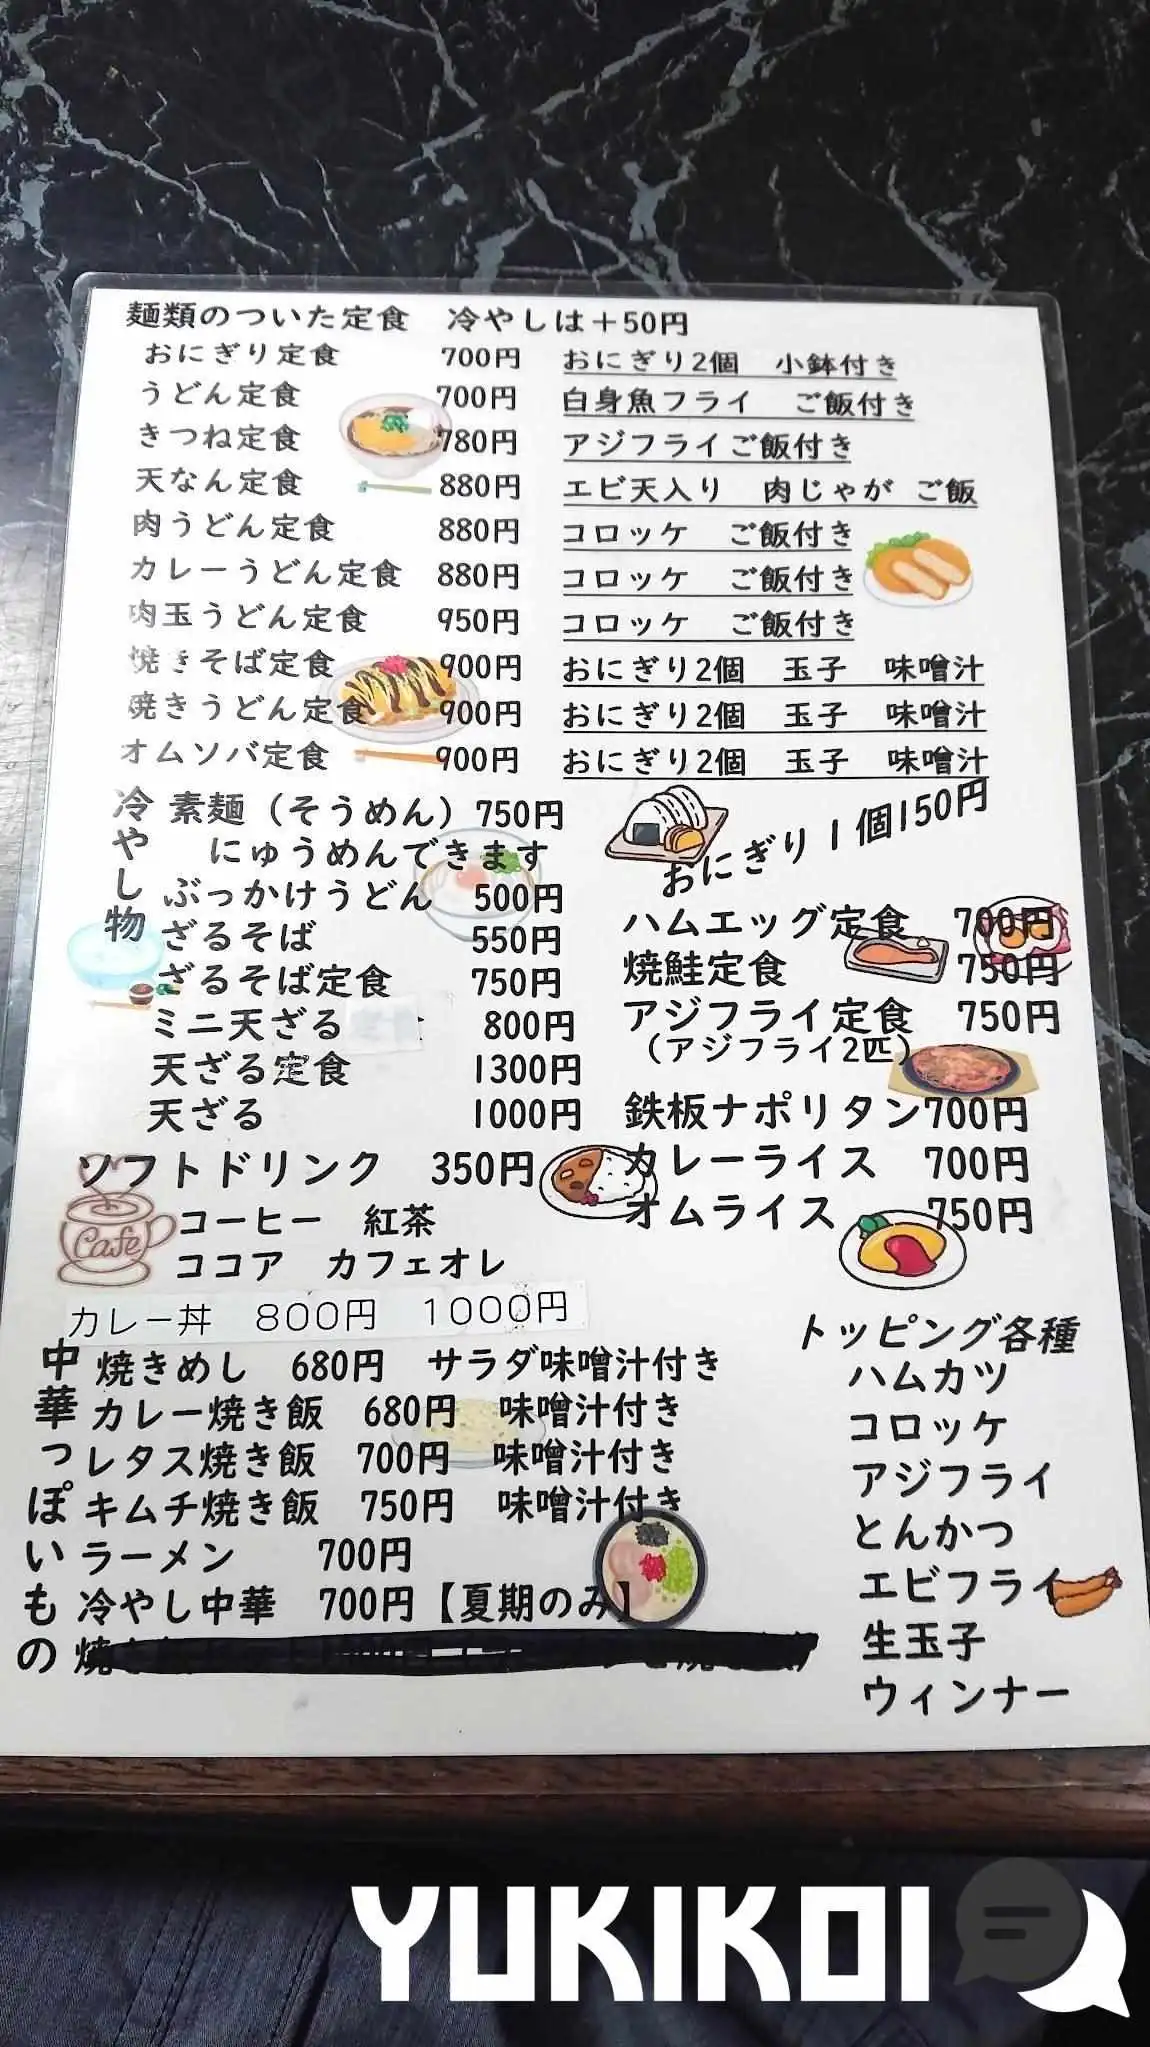 麺類のついた定食　冷やしは＋50円
おにぎり定食　700円　おにぎり2個　小鉢付き
うどん定食　700円　白身魚フライ　ご飯付き
きつね定食　780円　アジフライご飯付き
天なん定食　880円　エビ天入り　肉じゃが　ご飯
肉うどん定食　880円　コロッケ　ご飯付き
カレーうどん定食　880円　コロッケ　ご飯付き
肉玉うどん定食　950円　コロッケ　ご飯付き
焼きそば定食　900円　おにぎり2個　玉子　味噌汁
焼きうどん定食　900円　おにぎり2個　玉子　味噌汁
オムソバ定食　900円　おにぎり2個　玉子　味噌汁
冷やし物
素麺（そうめん）750円
にゅうめんできます
ぶっかけうどん　500円
ざるそば　550円
ざるそば定食　750円
ミニ天ざる　800円
天ざる定食　1300円
天ざる　1000円
おにぎり1個150円
ハムエッグ定食　700円
焼鮭定食　750円
アジフライ定食　750円
（アジフライ2匹）
鉄板ナポリタン700円
カレーライス　700円
オムライス　750円
ソフトドリンク　350円
Cafe
コーヒー　紅茶
ココア　カフェオレ
カレー丼　800円　1000円
中華っぽいもの
焼きめし　680円　サラダ味噌汁付き
カレー焼き飯　680円　味噌汁付き
レタス焼き飯　700円　味噌汁付き
キムチ焼き飯　750円　味噌汁付き
ラーメン　700円
冷やし中華　700円【夏期のみ】
焼
トッピング各種
ハムカツ
コロッケ
アジフライ
とんかつ
エビフライ
生玉子
ウィンナー
YUKIKOI